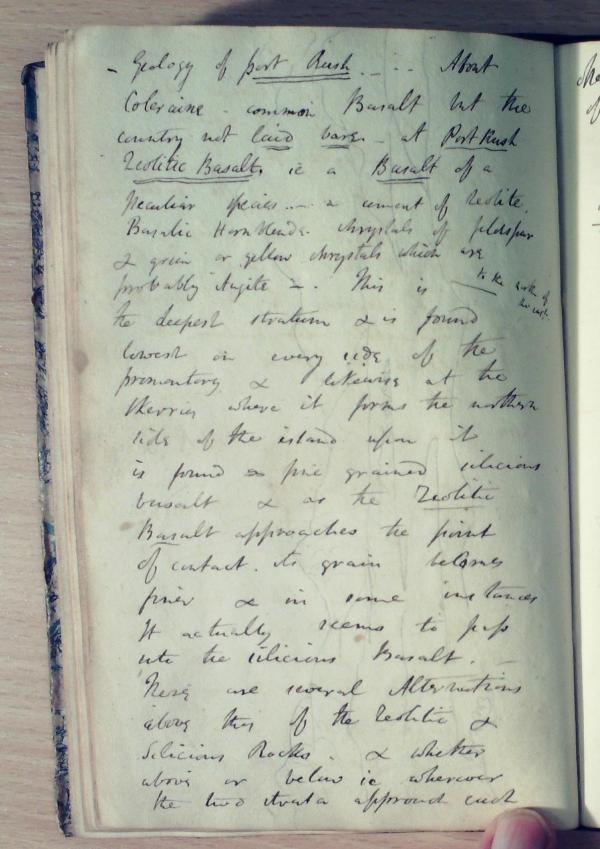 - Geology of port Rush --- About
Coleraine - common Basalt but the
country not laid bare - at Port Rush
Zeolitic Basalt, ie a Basalt of a
Peculiar species .... a cement of Zeolite,
Basaltic Hornblende. chrystals of feldspar
& green or yellow chrystals which are
probably Augite -. This is
to the north of
the deepest stratum & is found
lowest on every side of the
promontory & likewise at the
Skerries where it forms the northern
side of the island upon it
is found a fine grained silicious
basalt & as the Zeolitic
Basalt approaches the point
of contact. its grain becomes
finer & in some instances
It actually seems to pass
into the silicious Basalt. -
Here are several Alternations
above this of the Zeolitic &
Silicious Rocks. & whether
above or below ie wherever
the two strata approach each
Me
of